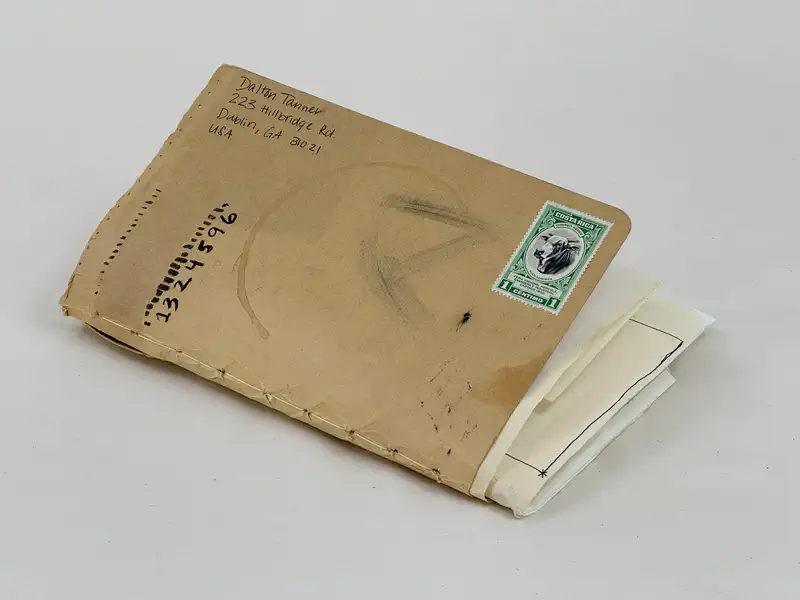 Dalton Tanner
223 Hillbridge Rd.
Dublin, GA 31021
USA
1324596
COSTA RICA
1 CENTIMO 1